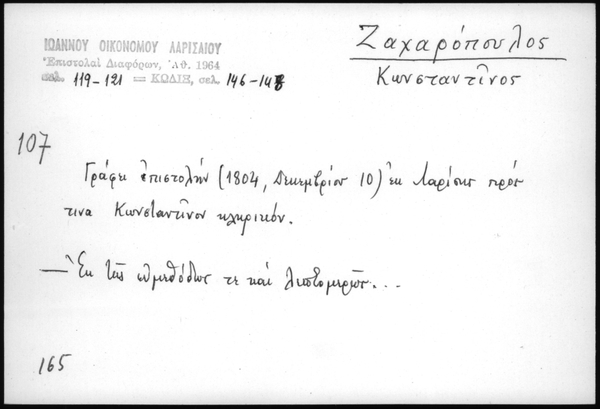 Ζαχαρόπουλος
Κωνσταντῖνος
ΙΩΑΝΝΟΥ ΟΙΚΟΝΟΜΟΥ ΛΑΡΙΣΑΙΟΥ
Ἐπιστολαὶ Διαφόρων, Ἀθ. 1964
σελ. 119-121 = ΚΩΔΙΞ, σελ. 146-148
107
Γράφει ἐπιστολήν (1804, Δεκεμβρίου 10) ἐκ Λαρίσης πρός
τινα Κωνσταντῖνον κληρικόν.
— Ἐκ τῆς εὐμεθόδως τε καὶ λεπτομερῶς...
165